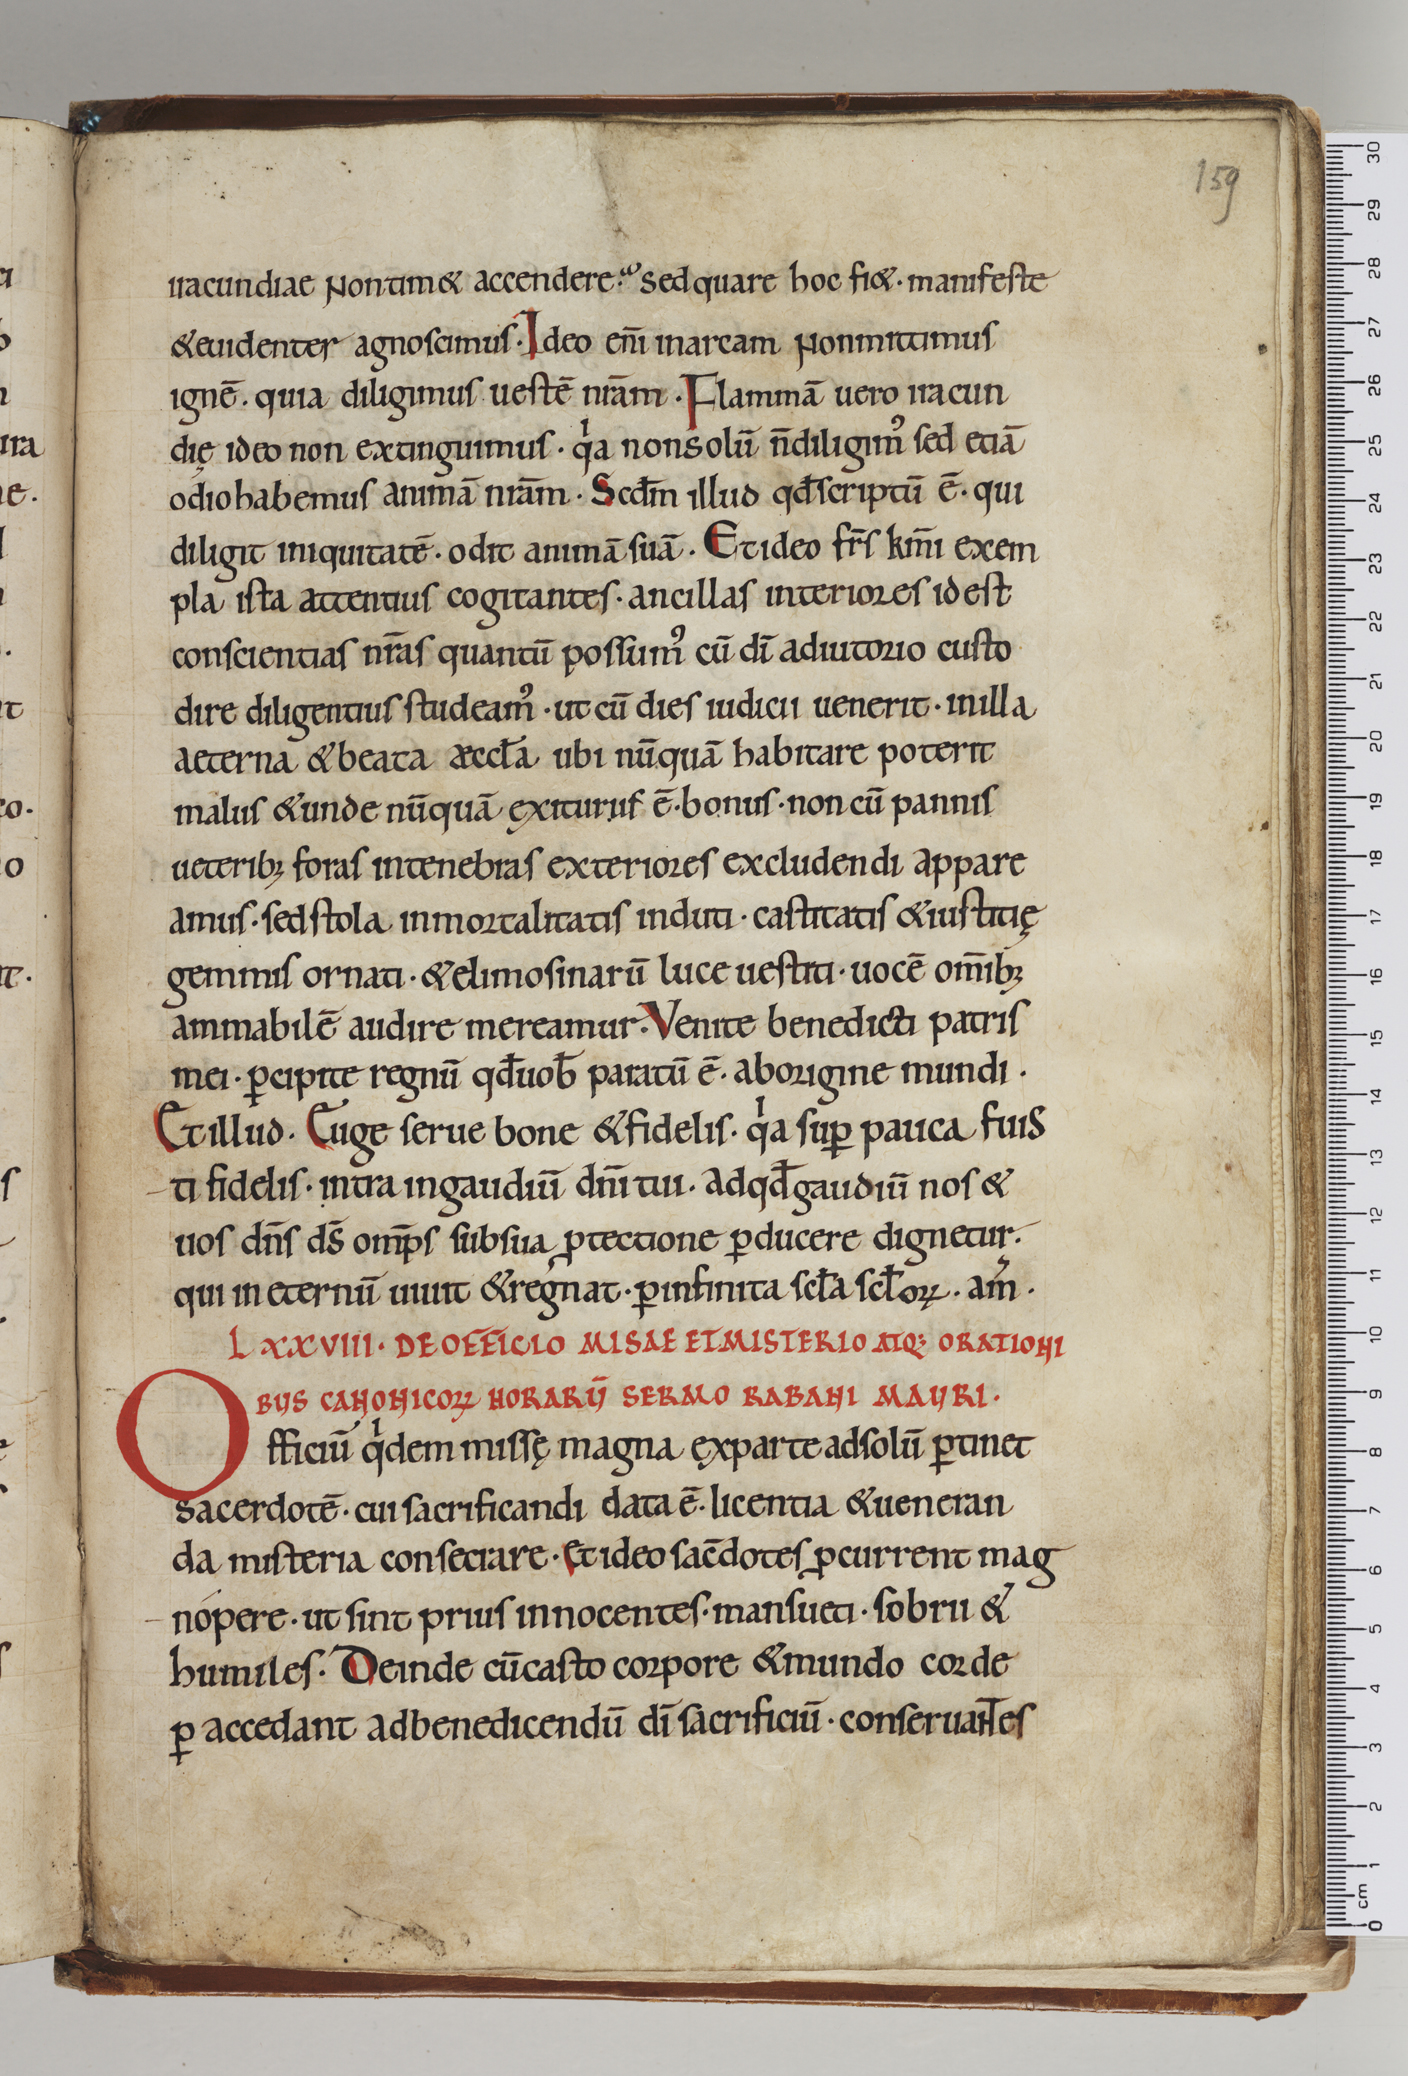 159
iracundiae non tim& accendere. sed quare hoc fi&. manifeste
& euidenter agnoscimus. Ideo eni̅ in arcam non mittimus
igne̅. quia diligimus ueste̅ nr̅am. Flamma̅ uero iracun
dię ideo non extinguimus. qͥa non solu̅ n̅ diligimꝰ sed etia̅
odio habemus anima̅ nr̅am. Scdm̅ illud qd̅ scriptu̅ e̅. qui
diligit iniquitate̅. odit anima̅ sua̅. Et ideo fr̅s km̅i exem
pla ista attentius cogitantes. ancillas interiores id est
conscientias nr̅as quantu̅ possumꝰ cu̅ di̅ adiutorio custo
dire diligentius studeamꝰ. ut cu̅ dies iudicii uenerit. in illa
aeterna & beata æccl̅a ubi nu̅qua̅ habitare poterit
malus & unde nu̅qua̅ exiturus e̅. bonus. non cu̅ pannis
ueteribꝫ foras in tenebras exteriores excludendi appare
amus. sed stola inmortalitatis induti. castitatis & iustitię
gemmis ornati. & elimosinaru̅ luce uestiti. uoce̅ om̅ibꝫ
ammabile̅ audire mereamur. Venite benedicti patris
mei. ꝑcipite regnu̅ qd̅ uob̅ paratu̅ e̅. ab origine mundi.
Et illud. Euge serue bone & fidelis. qͥa suꝑ pauca fuis
ti fidelis. intra in gaudiu̅ dn̅i tui. ad qd̅ gaudiu̅ nos &
uos dn̅s ds̅ omp̅s sub sua ꝓtectione ꝑducere dignetur.
qui in eternu̅ uiuit & regnat. ꝑ infinita scl̅a scl̅oꝝ. am̅.
LXXVIII. DE OFFICIO MISAE ET MISTERIO ATQꝫ ORATIONI
BUS CANONICOꝝ HORARU̅ SERMO RABANI MAURI.
Officiu̅ qͥdem missę magna ex parte ad solu̅ ꝑtinet
sacerdote̅. cui sacrificandi data e̅. licentia & ueneran
da misteria consecrare. Et ideo sac̅dotes ꝓcurrent mag
nópere. ut sint prius innocentes. mansueti. sobrii &
humiles. Deinde cu̅ casto corpore & mundo corde
ꝑ accedant ad benedicendu̅ di̅ sacrificiu̅. conseruantes